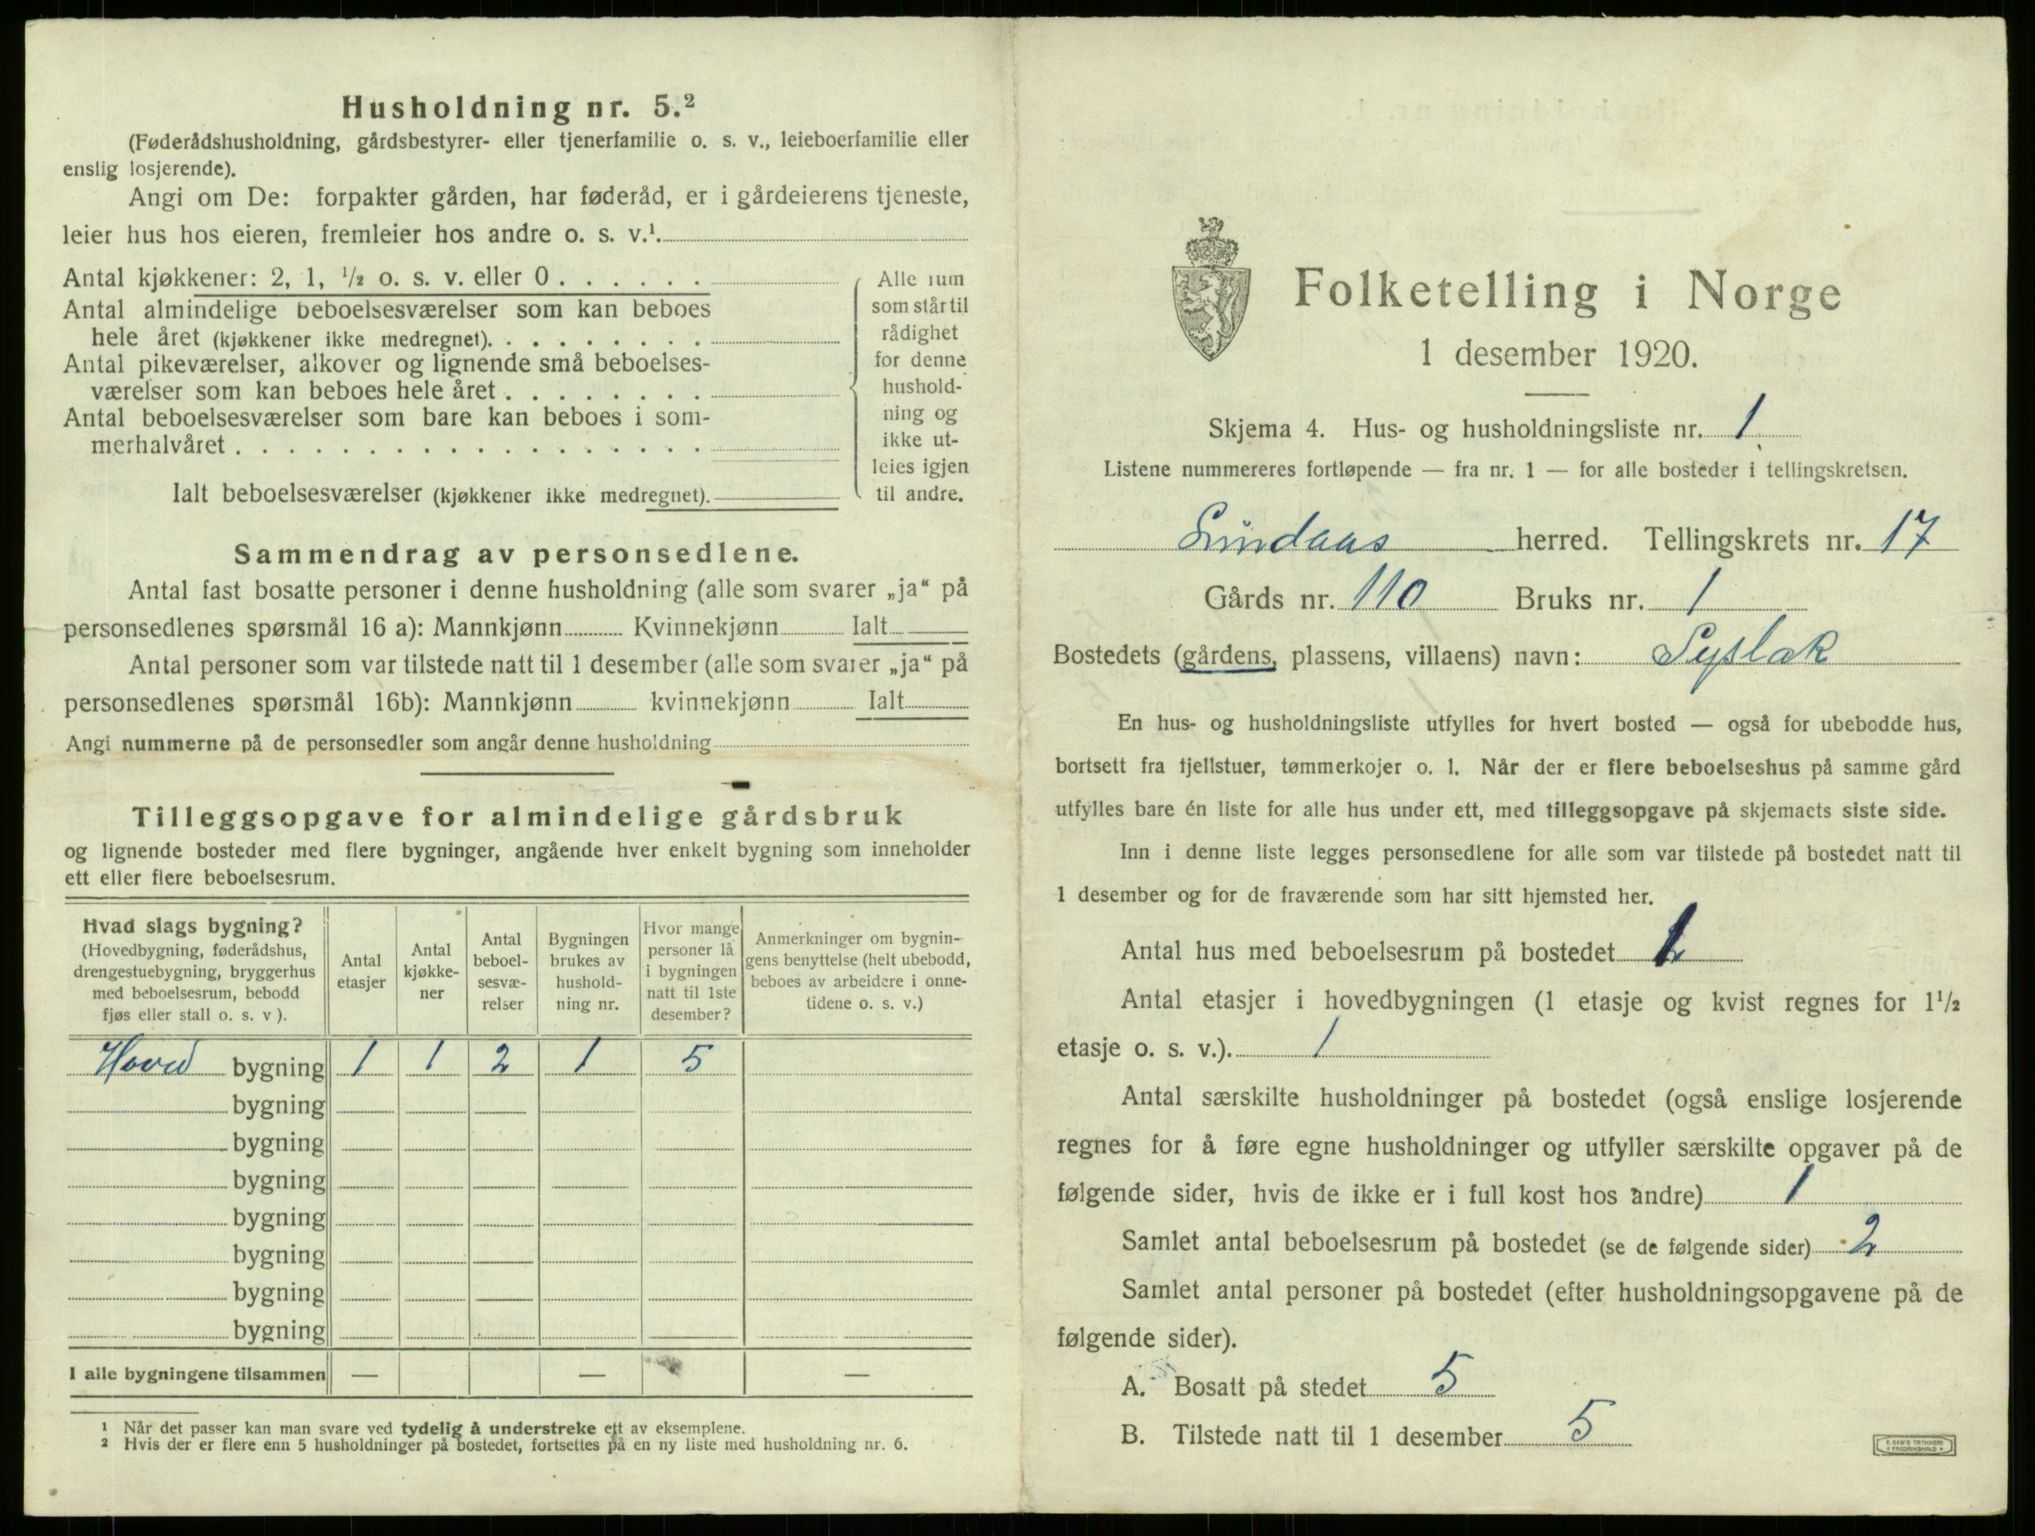 Husholdning nr. 5.²
(Føderådshusholdning, gårdsbestyrer- eller tjenerfamilie o. s. v., leieboerfamilie eller
enslig losjerende).
Angi om De: forpakter gården, har føderåd, er i gårdeierens tjeneste,
leier hus hos eieren, fremleier hos andre o. s. v.¹.
Antal kjøkkener: 2, 1, ½ o. s. v. eller 0 . . . . . .
Antal almindelige beboelsesværelser som kan beboes
hele året (kjøkkener ikke medregnet). . . . . . . . .
Antal pikeværelser, alkover og lignende små beboelses-
værelser som kan beboes hele året . . . . . . . .
Antal beboelsesværelser som bare kan beboes i som-
merhalvåret . . . . . . . . . . . . . . . . . .
Ialt beboelsesværelser (kjøkkener ikke medregnet).
Alle rum
som står til
rådighet
for denne
hushold-
ning og
ikke ut-
leies igjen
til andre.
Sammendrag av personsedlene.
Antal fast bosatte personer i denne husholdning (alle som svarer „ja“ på
personsedlenes spørsmål 16 a): Mannkjønn Kvinnekjønn Ialt
Antal personer som var tilstede natt til 1 desember (alle som svarer „ja“ på
personsedlenes spørsmål 16b): Mannkjønn kvinnekjønn Ialt
Angi nummerne på de personsedler som angår denne husholdning
Tilleggsopgave for almindelige gårdsbruk
og lignende bosteder med flere bygninger, angående hver enkelt bygning som inneholder
ett eller flere beboelsesrum.
Hvad slags bygning?
(Hovedbygning, føderådshus,
drengestuebygning, bryggerhus
med beboelsesrum, bebodd
fjøs eller stall o. s. v ).
Antal
etasjer
Antal
kjøkke-
ner
Antal
beboel-
sesvæ-
relser
Bygningen
brukes av
hushold-
ning nr.
Hvor mange
personer lå
i bygningen
natt til 1ste
desember?
Anmerkninger om bygnin-
gens benyttelse (helt ubebodd,
beboes av arbeidere i onne-
tidene o. s. v.)
Hoved bygning 1 1 2 1 5
bygning
bygning
bygning
bygning
bygning
bygning
bygning
I alle bygningene tilsammen — — —
¹ Når det passer kan man svare ved tydelig å understreke ett av eksemplene.
² Hvis der er flere enn 5 husholdninger på bostedet, fortsettes på en ny liste med husholdning nr. 6.
Folketelling i Norge
1 desember 1920.
Skjema 4. Hus- og husholdningsliste nr. 1
Listene nummereres fortløpende — fra nr. 1 — for alle bosteder i tellingskretsen.
Lindaas herred. Tellingskrets nr. 17
Gårds nr. 110 Bruks nr. 1
Bostedets (gårdens, plassens, villaens) navn: Syslak
En hus- og husholdningsliste utfylles for hvert bosted — også for ubebodde hus,
bortsett fra fjellstuer, tømmerkojer o. l. Når der er flere beboelseshus på samme gård
utfylles bare én liste for alle hus under ett, med tilleggsopgave på skjemaets siste side.
Inn i denne liste legges personsedlene for alle som var tilstede på bostedet natt til
1 desember og for de fraværende som har sitt hjemsted her.
Antal hus med beboelsesrum på bostedet 1
Antal etasjer i hovedbygningen (1 etasje og kvist regnes for 1½
etasje o. s. v.). 1
Antal særskilte husholdninger på bostedet (også enslige losjerende
regnes for å føre egne husholdninger og utfyller særskilte opgaver på de
følgende sider, hvis de ikke er i full kost hos andre) 1
Samlet antal beboelsesrum på bostedet (se de følgende sider) 2
Samlet antal personer på bostedet (efter husholdningsopgavene på de
følgende sider).
A. Bosatt på stedet 5
B. Tilstede natt til 1 desember 5